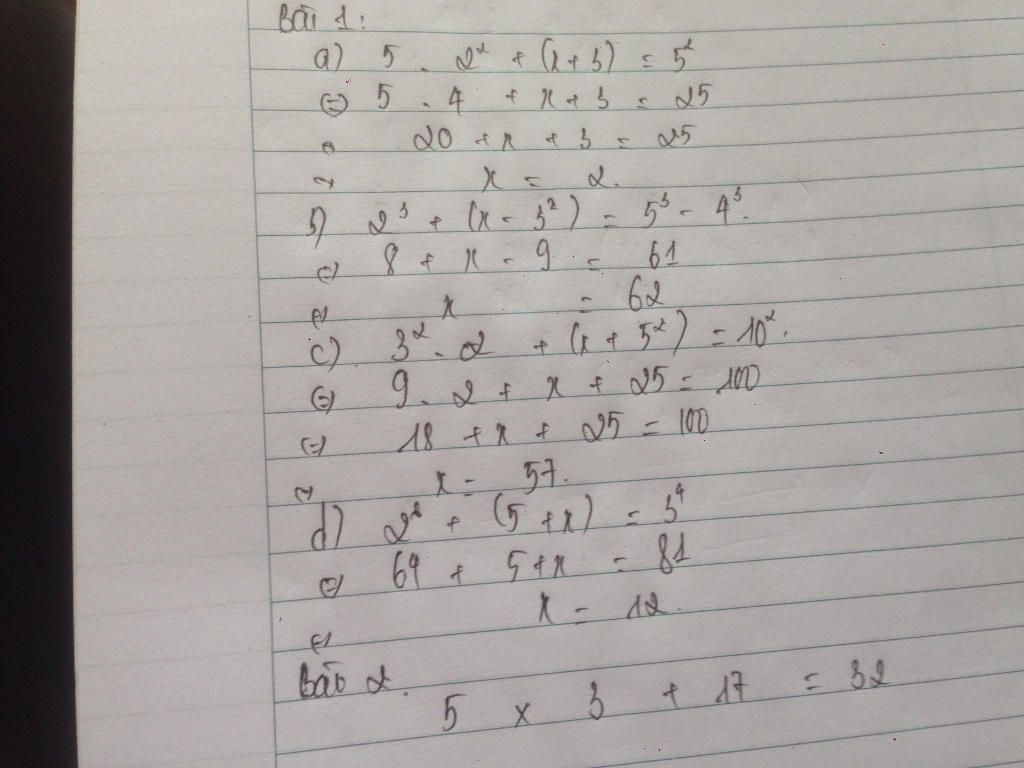 Bài 1:
a) 5 . 2² + (x+3) = 5²
⇔ 5 . 4 + x + 3 = 25
⇔ 20 + x + 3 = 25
⇔ x = 2.
b) 2³ + (x - 3²) = 5³ - 4³.
⇔ 8 + x - 9 = 61
⇔ x = 62
c) 3² . 2 + (x + 5²) = 10².
⇔ 9 . 2 + x + 25 = 100
⇔ 18 + x + 25 = 100
⇔ x = 57.
d) 2⁶ + (5 + x) = 3⁴
⇔ 64 + 5 + x = 81
⇔ x = 12.
Bài 2.
5 x 3 + 17 = 32